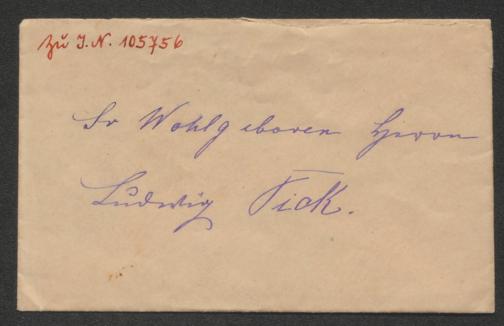 Zu I.N. 105756
Sr Wohlgeboren Herrn
Ludwig Fick.